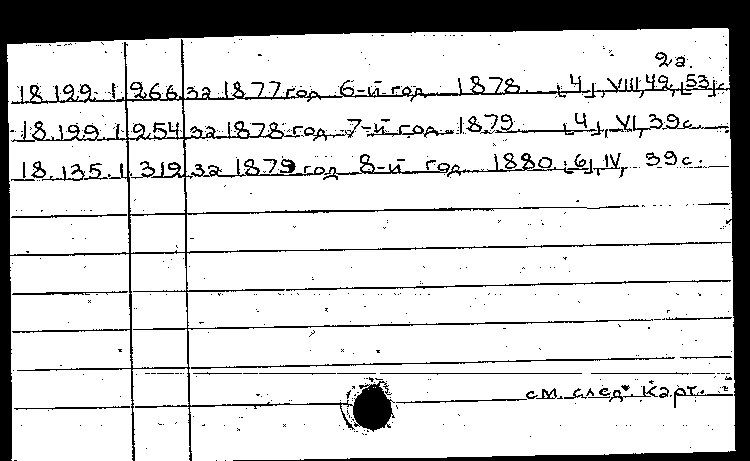 2а.
18.199.1.266 за 1877 год 6-й год 1878 [4], VIII, 42, [53] с.
18.199.1.254 за 1878 год 7-й год 1879 [4], VI, 39 с.
18.135.1.319 за 1879 год 8-й год 1880 [6], IV, 39 с.
см. след. карт.